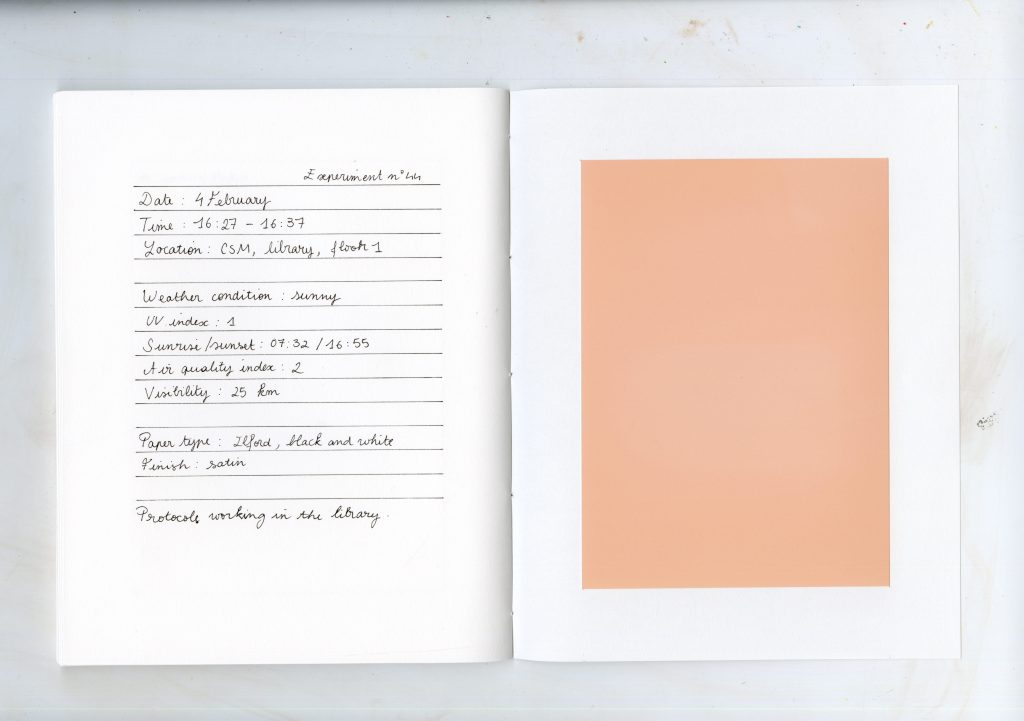 Experiment n°44
Date : 4 February
Time : 16:27 - 16:37
Location : CSM, library, floor 1
Weather condition : sunny
UV index : 1
Sunrise/sunset : 07:32 / 16:55
Air quality index : 2
Visibility : 25 km
Paper type : Ilford, black and white
Finish : satin
Protocol: working in the library.